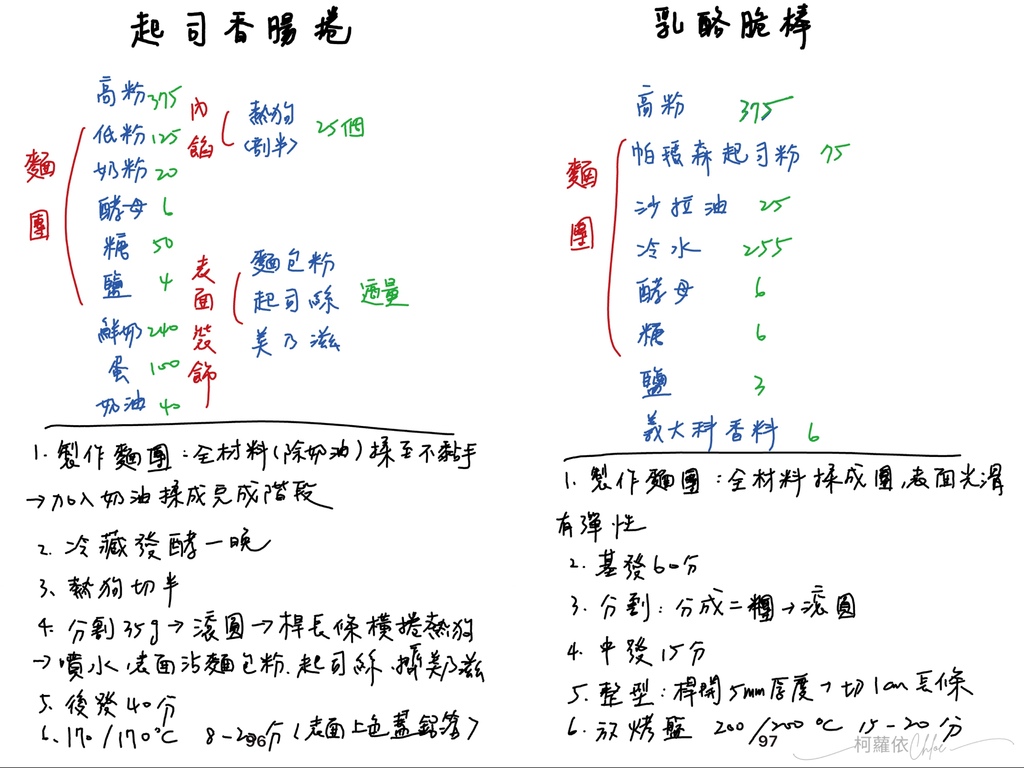 起司香腸捲
麵團
高粉 375
低粉 125
奶粉 20
酵母 6
糖 50
鹽 4
鮮奶 240
蛋 100
奶油 40
內餡
熱狗
(割半)
25個
表面裝飾
麵包粉
起司絲
美乃滋
適量
1. 製作麵團:全材料(除奶油)揉至不黏手
→加入奶油揉成完成階段
2. 冷藏發酵一晚
3、熱狗切半
4. 分割35g→滾圓→桿長條橫捲熱狗
→噴水、表面沾麵包粉、起司絲、擠美乃滋
5. 後發40分
6、170/170°C 8-20分(表面上色蓋鋁箔)
96
乳酪脆棒
麵團
高粉 375
帕瑪森起司粉 75
沙拉油 25
冷水 255
酵母 6
糖 6
鹽 3
義大利香料 6
1. 製作麵團:全材料揉成團、表面光滑
有彈性
2. 基發60分
3. 分割:分成二糰→滾圓
4. 中發15分
5. 整型:桿開5mm厚度→切1cm長條
6. 放烤盤 200/200°C 15-20分
97
柯蘿依Chloe